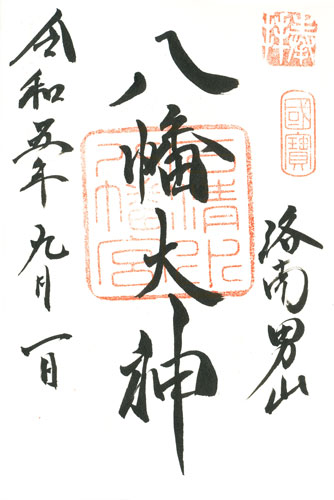 奉拝
國寶
洛南男山
八幡大神
石清水八幡宮
令和五年 九月 一日